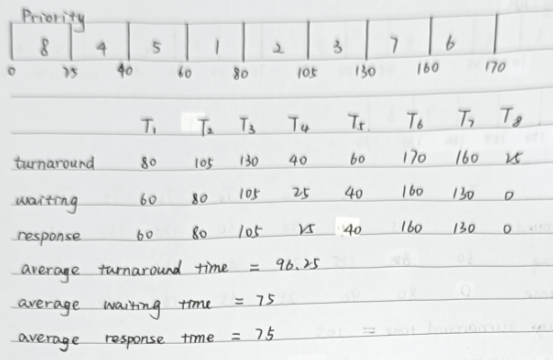 Priority
8 4 5 1 2 3 7 6
0 25 40 60 80 105 130 160 170
T1 T2 T3 T4 T5 T6 T7 T8
turnaround 80 105 130 40 60 170 160 25
waiting 60 80 105 25 40 160 130 0
response 60 80 105 25 40 160 130 0
average turnaround time = 96.25
average waiting time = 75
average response time = 75